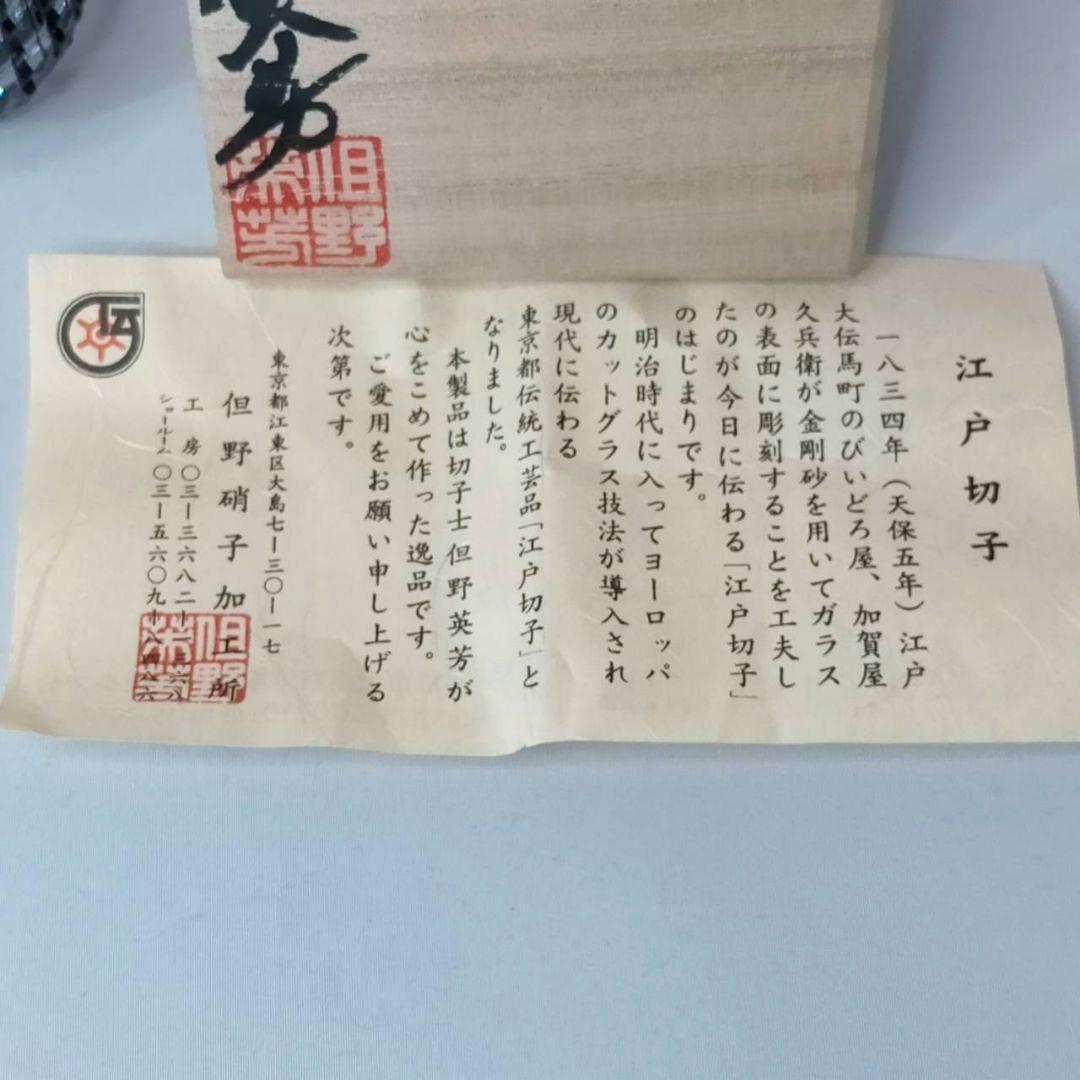 英芳
但野
英芳
江戸切子
一八三四年（天保五年）江戸
大伝馬町のびいどろ屋、加賀屋
久兵衛が金剛砂を用いてガラス
の表面に彫刻することを工夫し
たのが今日に伝わる「江戸切子」
のはじまりです。
明治時代に入ってヨーロッパ
のカットグラス技法が導入され
現代に伝わる
東京都伝統工芸品「江戸切子」と
なりました。
本製品は切子士但野英芳が
心をこめて作った逸品です。
ご愛用をお願い申し上げる
次第です。
東京都江東区大島七ー三〇ー一七
但野硝子加工所
工房〇三ー三六八二ー
ショールーム〇三ー五六〇九ー八四八六
但野